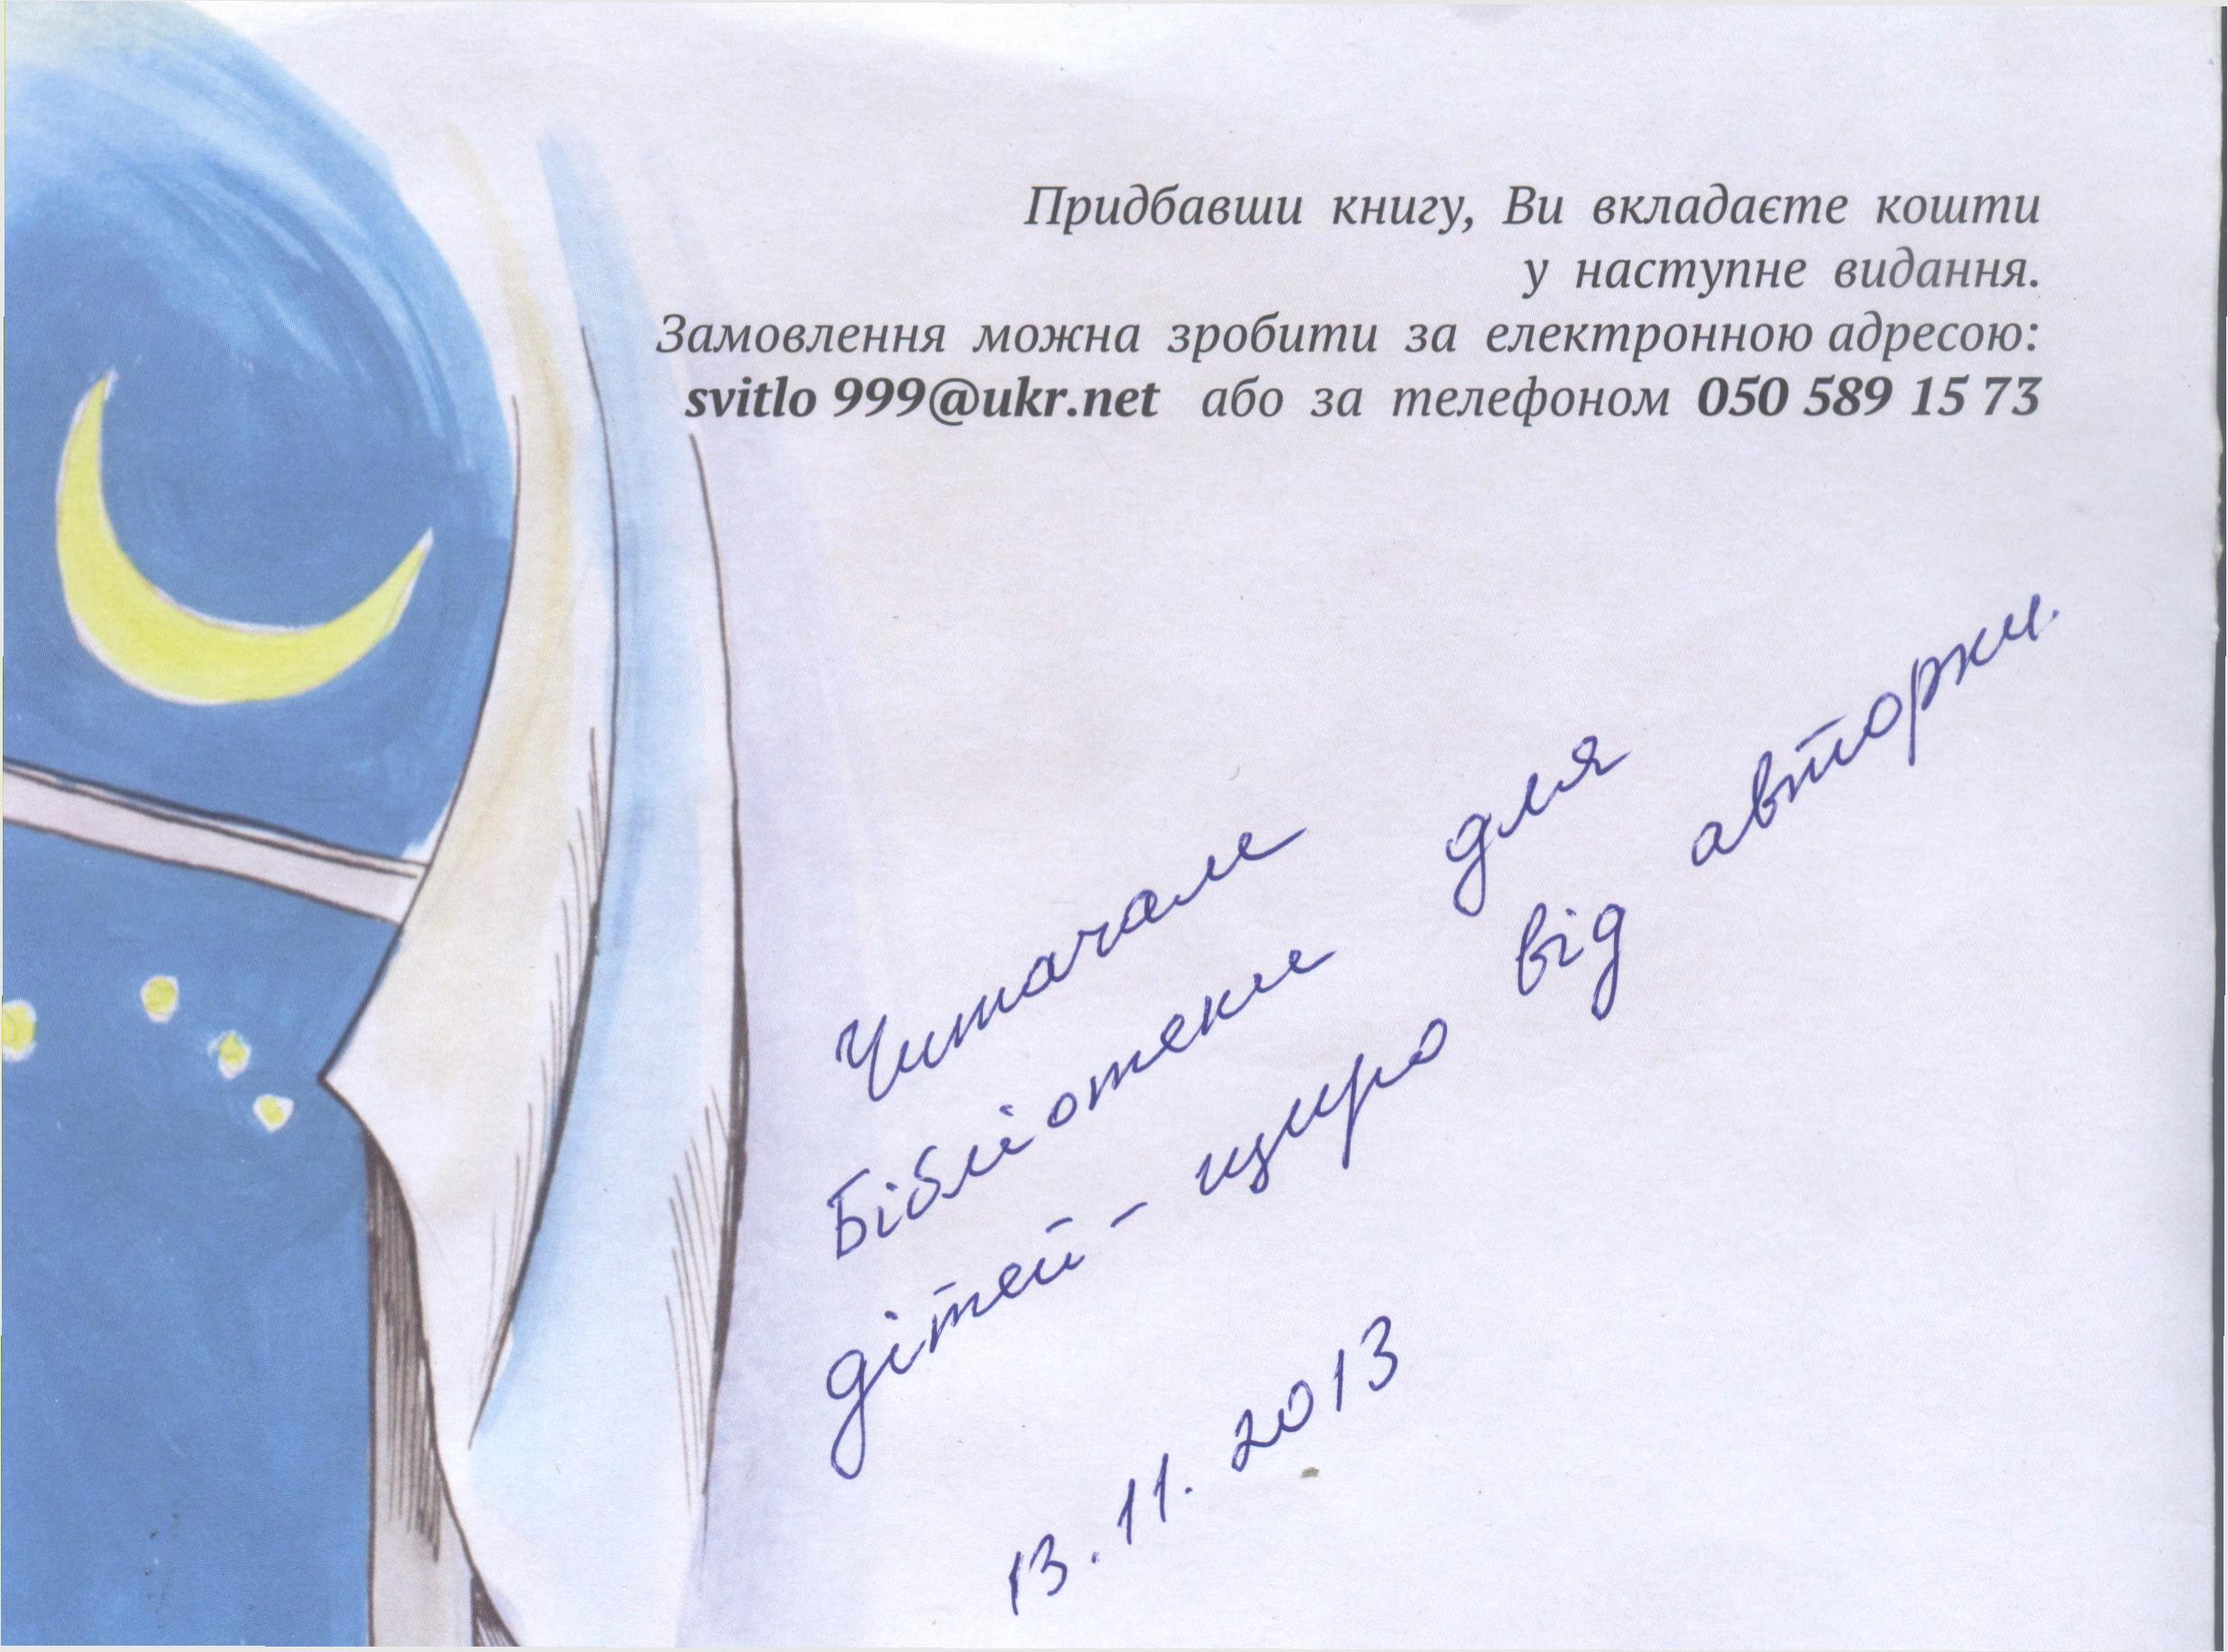 Придбавши книгу, Ви вкладаєте кошти
у наступне видання.
Замовлення можна зробити за електронною адресою:
svitlo 999@ukr.net або за телефоном 050 589 15 73
Читачам
Бібліотеки для
дітей - щиро від авторки.
13.11.2013